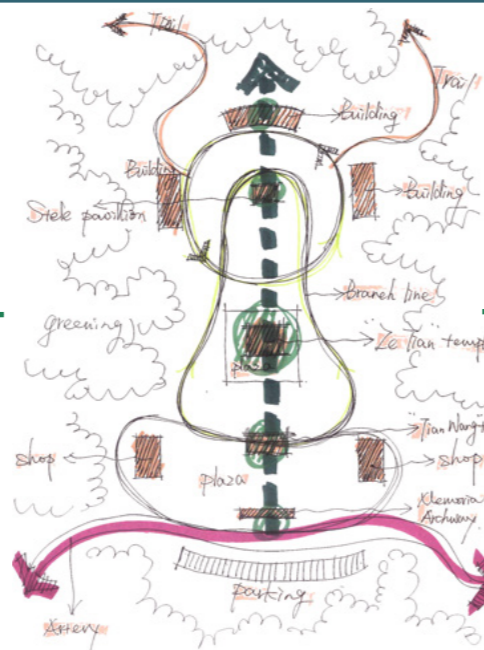 Trail
Trail
Building
Building
Building
Stele pavilion
Branch line
greening
"Ze Tian" temp
plaza
"Tian Wang"
shop
shop
plaza
Memorial
Archway
parking
Artery